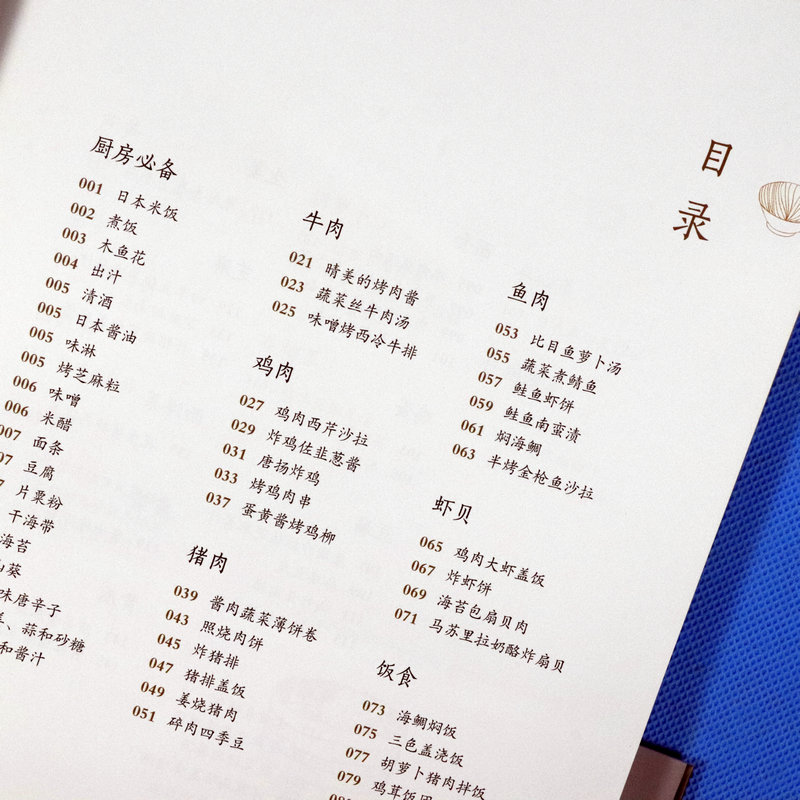 目录
厨房必备
001 日本米饭
002 煮饭
003 木鱼花
004 出汁
005 清酒
005 日本酱油
005 味淋
005 烤芝麻粒
006 味噌
006 米醋
007 面条
07 豆腐
7 片栗粉
干海带
海苔
葵
味唐辛子
、蒜和砂糖
和酱汁
牛肉
021 晴美的烤肉酱
023 蔬菜丝牛肉汤
025 味噌烤西冷牛排
鸡肉
027 鸡肉西芹沙拉
029 炸鸡佐韭葱酱
031 唐扬炸鸡
033 烤鸡肉串
037 蛋黄酱烤鸡柳
猪肉
039 酱肉蔬菜薄饼卷
043 照烧肉饼
045 炸猪排
047 猪排盖饭
049 姜烧猪肉
051 碎肉四季豆
鱼肉
053 比目鱼萝卜汤
055 蔬菜煮鲭鱼
057 鲑鱼虾饼
059 鲑鱼南蛮渍
061 焖海鲷
063 半烤金枪鱼沙拉
虾贝
065 鸡肉大虾盖饭
067 炸虾饼
069 海苔包扇贝肉
071 马苏里拉奶酪炸扇贝
饭食
073 海鲷焖饭
075 三色盖浇饭
077 胡萝卜猪肉拌饭
079 鸡茸饭团